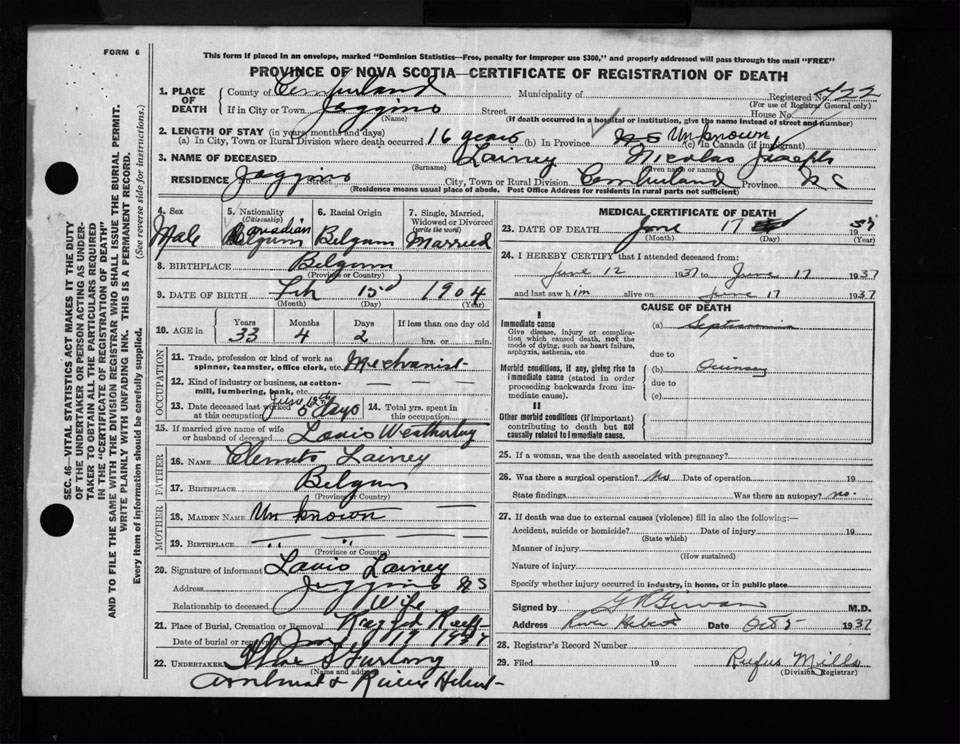 FORM 6
This form if placed in an envelope, marked "Dominion Statistics—Free, penalty for improper use $300," and properly addressed will pass through the mail "FREE"
PROVINCE OF NOVA SCOTIA—CERTIFICATE OF REGISTRATION OF DEATH
SEC. 46—VITAL STATISTICS ACT MAKES IT THE DUTY
OF THE UNDERTAKER OR PERSON ACTING AS UNDER-
TAKER TO OBTAIN ALL THE PARTICULARS REQUIRED
IN THE "CERTIFICATE OF REGISTRATION OF DEATH"
AND TO FILE THE SAME WITH THE DIVISION REGISTRAR WHO SHALL ISSUE THE BURIAL PERMIT.
WRITE PLAINLY WITH UNFADING INK. THIS IS A PERMANENT RECORD.
Every item of information should be carefully supplied. (See reverse side for instructions.)
1. PLACE OF DEATH County of Cumberland Municipality of Registered No. 422
(For use of Registrar General only)
If in City or Town Joggins Street House No.
(Name) (If death occurred in a hospital or institution, give the name instead of street and number)
2. LENGTH OF STAY (in years, months and days)
(a) In City, Town or Rural Division where death occurred 16 years (b) In Province (c) In Canada (if immigrant) Unknown
3. NAME OF DECEASED Lainey Nicolas Joseph
(Surname) (Given name or names)
RESIDENCE Joggins Street City, Town or Rural Division Cumberland Province
(Residence means usual place of abode. Post Office Address for residents in rural parts not sufficient)
4. Sex 5. Nationality (Citizenship) 6. Racial Origin 7. Single, Married, Widowed or Divorced (write the word)
Male Belgium Canadian Belgium Married
8. BIRTHPLACE Belgium
(Province or Country)
9. DATE OF BIRTH Feb 15 1904
(Month) (Day) (Year)
10. AGE in Years Months Days If less than one day old
33 4 2 hrs. or min.
OCCUPATION
11. Trade, profession or kind of work as spinner, teamster, office clerk, etc. Mechanist
12. Kind of industry or business, as cotton-mill, lumbering, bank, etc.
13. Date deceased last worked at this occupation June 12 5 days 14. Total yrs. spent in this occupation
15. If married give name of wife or husband of deceased Lavis
FATHER
16. NAME Lainey
17. BIRTHPLACE Belgium
(Province or Country)
MOTHER
18. MAIDEN NAME Unknown
19. BIRTHPLACE " "
(Province or Country)
20. Signature of informant Lavis Lainey
Address Joggins N S
Relationship to deceased Wife
21. Place of Burial, Cremation or Removal
Date of burial or removal 19 1937
22. UNDERTAKER Furlong
(Name and address)
Amherst & River Hebert
MEDICAL CERTIFICATE OF DEATH
23. DATE OF DEATH June 17 1937
(Month) (Day) (Year)
24. I HEREBY CERTIFY that I attended deceased from:
June 12 1937 to June 17 1937
and last saw him alive on June 17 1937
CAUSE OF DEATH
I
Immediate cause (a) Septicaemia
Give disease, injury or complication which caused death, not the mode of dying, such as heart failure, asphyxia, asthenia, etc. due to
Morbid conditions, if any, giving rise to immediate cause (stated in order proceeding backwards from immediate cause). (b) Quinsey
due to
(c)
II
Other morbid conditions (if important) contributing to death but not causally related to immediate cause.
25. If a woman, was the death associated with pregnancy?
26. Was there a surgical operation? Date of operation 19
State findings Was there an autopsy? no.
27. If death was due to external causes (violence) fill in also the following:—
Accident, suicide or homicide? Date of injury 19
(State which)
Manner of injury
(How sustained)
Nature of injury
Specify whether injury occurred in industry, in home, or in public place
Signed by M.D.
Address River Hebert Date Oct 5 1937
28. Registrar's Record Number
29. Filed 19 Rufus Mills
(Division Registrar)